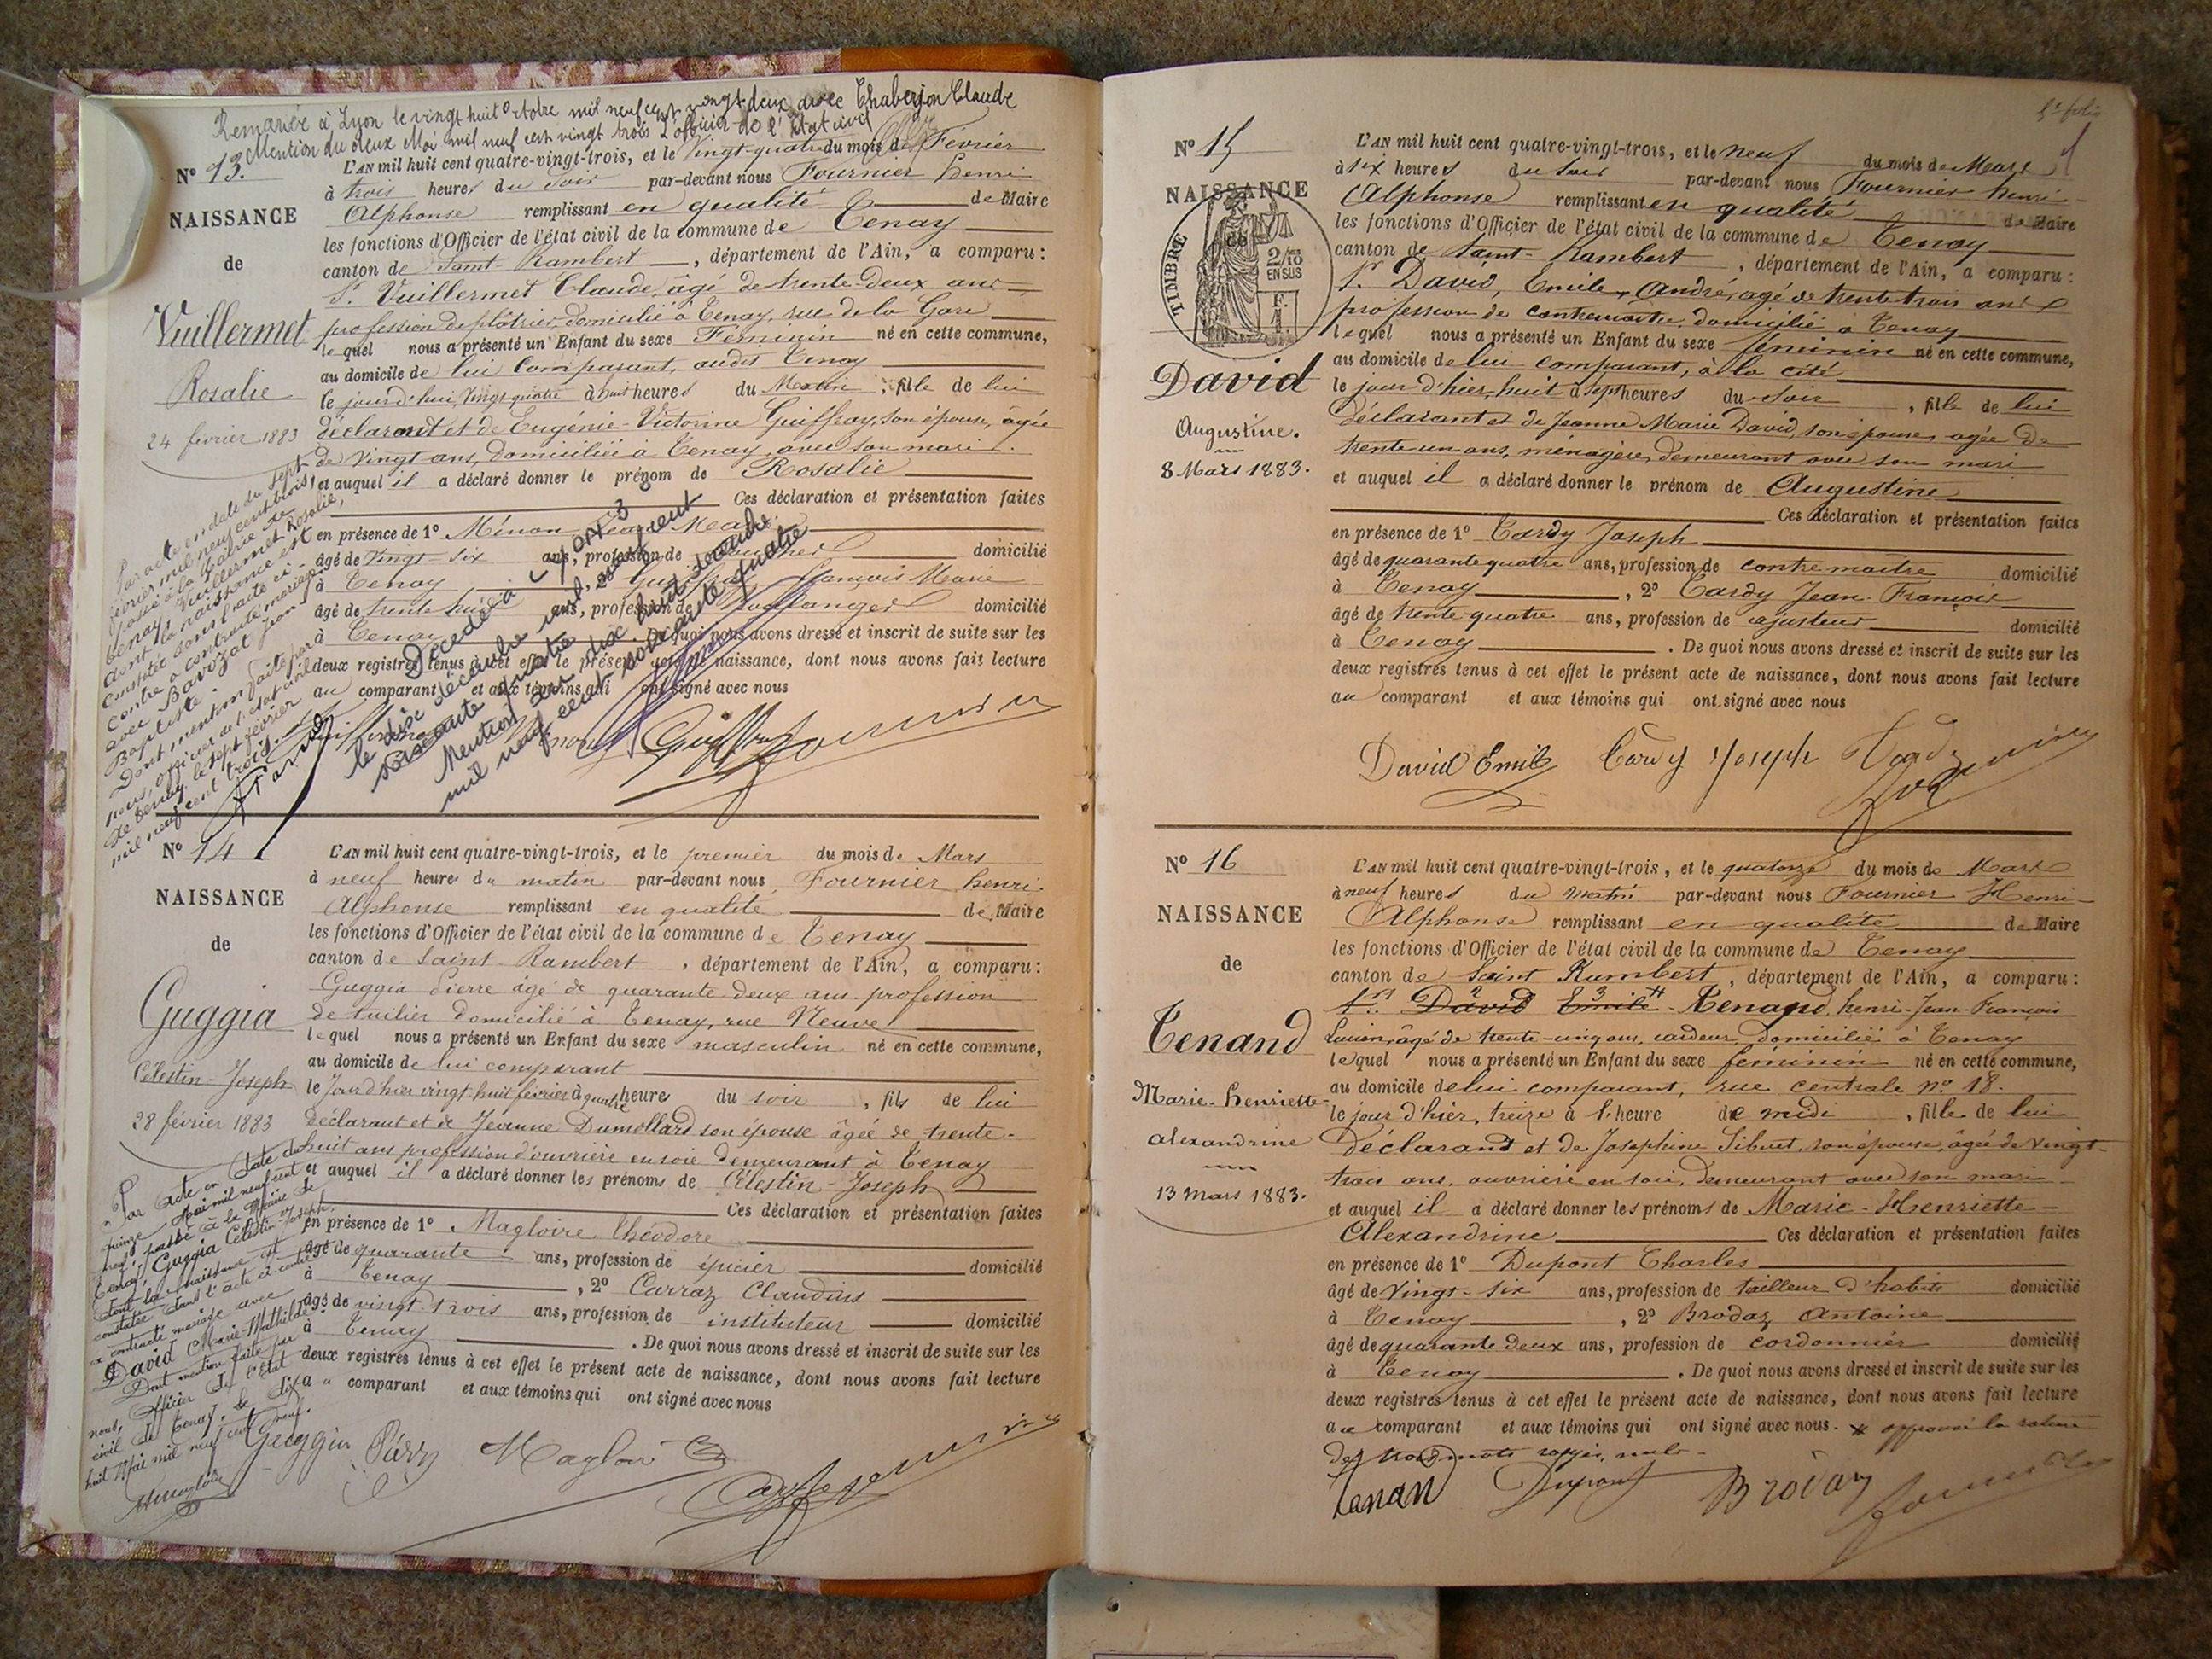 Remariée à Lyon le vingt huit octobre mil neuf cent vingt deux avec Chaberjon Claude
Mention du deux Mai mil neuf cent vingt trois L'officier de l'Etat civil
N° 13.
NAISSANCE
de
Vuillermet
Rosalie
24 février 1883
L'AN mil huit cent quatre-vingt-trois, et le Vingt-quatre du mois de Février
à trois heures du Soir par-devant nous Fournier henri
Alphonse remplissant en qualité de Maire
les fonctions d'Officier de l'état civil de la commune de Tenay
canton de Saint-Rambert, département de l'Ain, a comparu:
Sr. Vuillermet Claude, âgé de trente-deux ans
profession de plâtrier, domicilié à Tenay, rue de la Gare
lequel nous a présenté un Enfant du sexe Féminin né en cette commune,
au domicile de lui comparant, audit Tenay
le jourd'hui, Vingt quatre à huit heures du Matin, fille de lui
déclarant et de Eugénie-Victorine Guiffray, son épouse, âgée
de Vingt ans, domiciliée à Tenay, avec son mari.
et auquel il a déclaré donner le prénom de Rosalie
Ces déclaration et présentation faites
en présence de 1° Ménon Marie
âgé de Vingt-six ans, profession de domicilié
à Tenay Guiffray François Marie
âgé de trente huit ans, profession de Boulanger domicilié
à Tenay De quoi nous avons dressé et inscrit de suite sur les
deux registres tenus à cet effet le présent acte de naissance, dont nous avons fait lecture
au comparant et aux témoins qui ont signé avec nous
Par acte en date du sept
février mil neuf cent trois,
passé à la Mairie de
Tenay, Vuillermet Rosalie,
dont la naissance est
constatée dans l'acte ci-
contre a contracté mariage
avec Barizat Jean
Baptiste.
Dont mention faite par
nous, officier de l'état civil
de Tenay, le sept février
mil neuf cent trois.
Décédée à Lyon 3e
le dix décembre mil neuf cent
soixante quatre
Mention du dix huit décembre
mil neuf cent soixante quatre
Guiffray Fournier
N° 14
NAISSANCE
de
Guggia
Célestin-Joseph
28 février 1883
L'AN mil huit cent quatre-vingt-trois, et le premier du mois de Mars
à neuf heures du matin par-devant nous Fournier henri
Alphonse remplissant en qualité de Maire
les fonctions d'Officier de l'état civil de la commune de Tenay
canton de Saint Rambert, département de l'Ain, a comparu:
Guggia Pierre âgé de quarante deux ans profession
de tuilier domicilié à Tenay, rue Neuve
lequel nous a présenté un Enfant du sexe masculin né en cette commune,
au domicile de lui comparant
le Jour d'hier vingt huit février à quatre heures du soir, fils de lui
déclarant et de Jeanne Dumollard son épouse âgée de trente-
huit ans profession d'ouvrière en soie demeurant à Tenay
et auquel il a déclaré donner les prénoms de Célestin-Joseph
Ces déclaration et présentation faites
en présence de 1° Magloire Théodore
âgé de quarante ans, profession de épicier domicilié
à Tenay, 2° Carraz Claudius
âgé de vingt trois ans, profession de instituteur domicilié
à Tenay. De quoi nous avons dressé et inscrit de suite sur les
deux registres tenus à cet effet le présent acte de naissance, dont nous avons fait lecture
au comparant et aux témoins qui ont signé avec nous
Par Acte en Date du
quinze Mai mil neuf cent
neuf, passé à la Mairie de
Tenay, Guggia Célestin-Joseph,
dont la naissance est
constatée dans l'acte ci-contre
a contracté mariage avec
David Marie-Mathilde
Dont mention faite par
nous, Officier de l'état
civil de Tenay, le dix
huit Mai mil neuf cent neuf.
Guggia Pierre Magloire Carraz Fournier
N° 15
NAISSANCE
de
TIMBRE
2/10
EN SUS
David
Augustine.
8 Mars 1883.
L'AN mil huit cent quatre-vingt-trois, et le neuf du mois de Mars
à six heures du Soir par-devant nous Fournier henri
Alphonse remplissant en qualité de Maire
les fonctions d'Officier de l'état civil de la commune de Tenay
canton de Saint-Rambert, département de l'Ain, a comparu:
Sr. David, Emile, André, âgé de trente trois ans
profession de contremaître, domicilié à Tenay
lequel nous a présenté un Enfant du sexe féminin né en cette commune,
au domicile de lui comparant, à la cité
le jour d'hier, huit à sept heures du Soir, fille de lui
déclarant et de Jeanne Marie David, son épouse, agée de
trente-un ans, ménagère, demeurant avec son mari
et auquel il a déclaré donner le prénom de Augustine
Ces déclaration et présentation faites
en présence de 1° Tardy Joseph
âgé de quarante quatre ans, profession de contremaitre domicilié
à Tenay, 2° Tardy Jean-François
âgé de trente-quatre ans, profession de ajusteur domicilié
à Tenay. De quoi nous avons dressé et inscrit de suite sur les
deux registres tenus à cet effet le présent acte de naissance, dont nous avons fait lecture
au comparant et aux témoins qui ont signé avec nous
David Emile Tardy Joseph Tardy Fournier
N° 16
NAISSANCE
de
Tenand
Marie-henriette-
alexandrine
13 mars 1883.
L'AN mil huit cent quatre-vingt-trois, et le quatorze du mois de Mars
à neuf heures du matin par-devant nous Fournier Henri-
Alphonse remplissant en qualité de Maire
les fonctions d'Officier de l'état civil de la commune de Tenay
canton de Saint Rambert, département de l'Ain, a comparu:
Sr. David Emile - Tenand, henri-Jean-François
Lucien, âgé de trente-cinq ans, cardeur, domicilié à Tenay
lequel nous a présenté un Enfant du sexe féminin né en cette commune,
au domicile de lui comparant, rue centrale n° 18.
le jour d'hier, treize à 1 heure de midi, fille de lui
Déclarant et de Josephine Sibuet, son épouse, âgée de vingt-
trois ans, ouvrière en soie, demeurant avec son mari
et auquel il a déclaré donner les prénoms de Marie-Henriette-
Alexandrine Ces déclaration et présentation faites
en présence de 1° Dupont Charles
âgé de Vingt-six ans, profession de tailleur d'habits domicilié
à Tenay, 2° Brodaz Antoine
âgé de quarante deux ans, profession de cordonnier domicilié
à Tenay. De quoi nous avons dressé et inscrit de suite sur les
deux registres tenus à cet effet le présent acte de naissance, dont nous avons fait lecture
au comparant et aux témoins qui ont signé avec nous. approuvé la rature
des trois mots rayés, nuls.
Tenand Dupont Brodaz Fournier